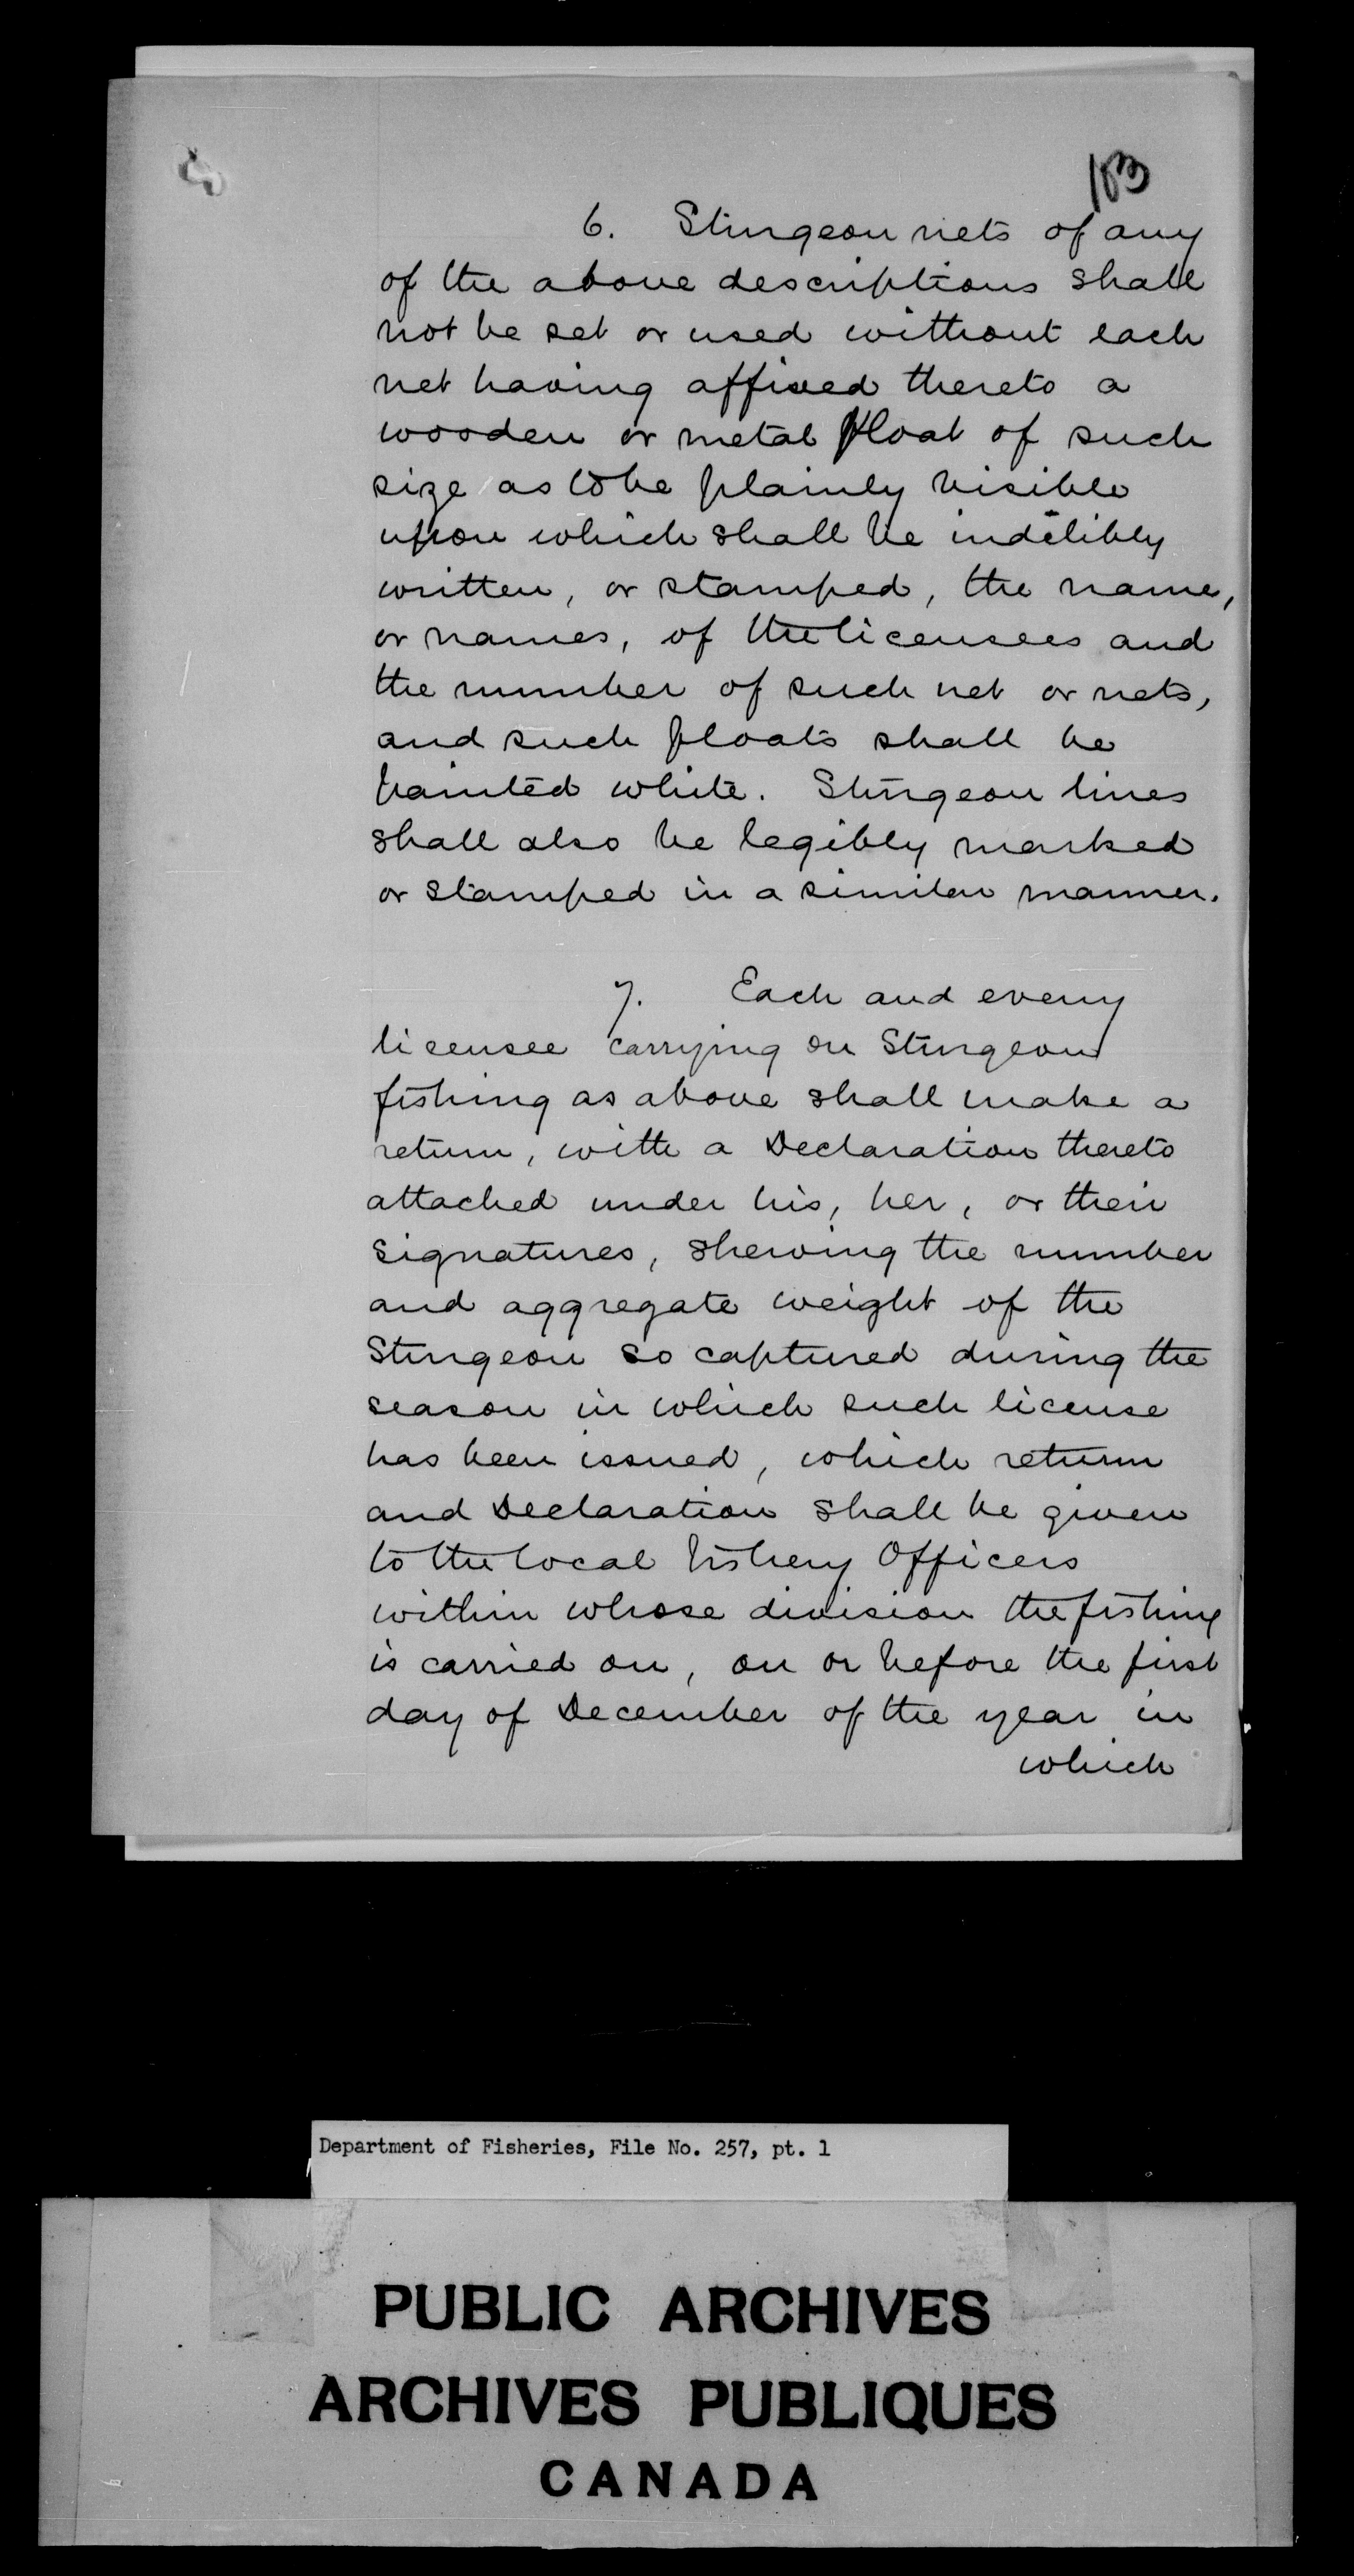 183
6. Sturgeon nets of any
of the above descriptions shall
not be set or used without each
net having affixed thereto a
wooden or metal float of such
size as to be plainly visible
upon which shall be indelibly
written, or stamped, the name,
or names, of the licensees and
the number of such net or nets,
and such floats shall be
painted white. Sturgeon lines
shall also be legibly marked
or stamped in a similar manner.
7. Each and every
licensee carrying on Sturgeon
fishing as above shall make a
return, with a Declaration thereto
attached under his, her, or their
signatures, shewing the number
and aggregate weight of the
Sturgeon so captured during the
season in which such license
has been issued, which return
and Declaration shall be given
to the local Fishery Officers
within whose division the fishing
is carried on, on or before the first
day of December of the year in
which
Department of Fisheries, File No. 257, pt. 1
PUBLIC ARCHIVES
ARCHIVES PUBLIQUES
CANADA